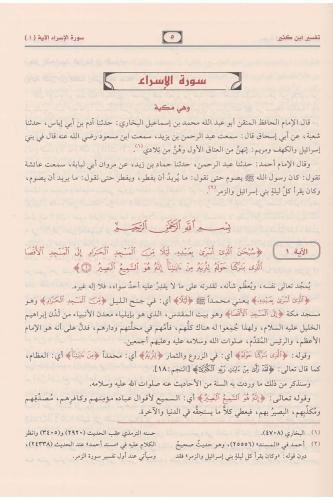 تفسير ابن كثير:
٥
سورة الإسراء الآية (١)
سورة الإسراء
وهي مكية
قال الإمام الحافظ المتقن أبو عبد الله محمد بن إسماعيل البخاري: حدثنا آدم بن أبي إياس، حدثنا
شعبة، عن أبي إسحاق قال: سمعت عبد الرحمن بن يزيد، سمعت ابن مسعود رضي الله عنه قال في بني
إسرائيل والكهف ومريم: إنهن من العتاق الأول وهُنَّ من تِلادي(١).
وقال الإمام أحمد: حدثنا عبد الرحمن، حدثنا حماد بن زيد، عن مروان أبي لبابة، سمعت عائشة
تقول: كان رسول الله ﷺ يصوم حتى نقول: ما يريدُ أن يفطر، ويفطر حتى نقول: ما يريد أن يصوم،
وكان يقرأ كلَّ ليلةٍ بني إسرائيل والزمر(٢).
بِسْمِ اللَّهِ الرَّحْمَنِ الرَّحِيمِ
الآية ١
﴿سُبْحَنَ الَّذِى أَسْرَى بِعَبْدِهِ، لَيْلًا مِنَ الْمَسْجِدِ الْحَرَامِ إِلَى الْمَسْجِدِ الْأَقْصَا
الَّذِى بَرَكْنَا حَوْلَهُ لِنُرِيَهُ مِنْ ءَايَتِنَا إِنَّهُ هُوَ السَّمِيعُ الْبَصِيرُ ١﴾
يُمجِّد تعالى نفسَه، ويُعظِّم شأنه، لقدرته على ما لا يقدِرُ عليه أحدٌ سواه، فلا إله غيره.
﴿الَّذِى أَسْرَى بِعَبْدِهِ﴾ يعني محمداً ﷺ ﴿لَيْلًا﴾ أي: في جنح الليل ﴿مِنَ الْمَسْجِدِ الْحَرَامِ﴾ وهو
مسجد مكة ﴿إِلَى الْمَسْجِدِ الْأَقْصَا﴾ وهو بيت المقدس، الذي هو بإيلياء، معدن الأنبياء، من لَدُن إبراهيم
الخليل عليه السلام، ولهذا جُمعوا له هناك كلُّهم، فأمَّهم في محلَّتهم ودارهم، فدلَّ على أنه هو الإمام
الأعظم، والرئيس المُقدَّم، صلوات الله وسلامه عليه وعليهم أجمعين.
وقوله: ﴿الَّذِى بَرَكْنَا حَوْلَهُ﴾ أي: في الزروع والثمار ﴿لِنُرِيَهُ﴾ أي: محمداً ﴿مِنْ ءَايَتِنَا﴾ أي: العظام،
كما قال تعالى: ﴿لَقَدْ رَأَى مِنْ ءَايَتِ رَبِّهِ الْكُبْرَى﴾ [النجم: ١٨].
وسنذكر من ذلك ما وردت به السنة من الأحاديث عنه صلوات الله عليه وسلامه.
وقوله تعالى: ﴿إِنَّهُ هُوَ السَّمِيعُ الْبَصِيرُ﴾ أي: السميع لأقوال عباده مؤمنهم وكافرهم، مُصدِّقهم
ومُكذِّبهم، البصير بهم، فيعطي كلاً ما يستحقُّه في الدنيا والآخرة.
(١) البخاري (٤٧٠٨).
(٢) أحمد في «المسند» (٢٥٥٥٦)، وهو حديث صحيحٌ
دون قوله: «وكان يقرأ كل ليلةٍ بني إسرائيل والزمر» فقد
حسنه الترمذي عقب (٢٩٢٠) و(٣٤٠٥) وانظر
الكلام عليه في «مسند أحمد» عند الحديث (٢٤٣٨٨)
وسيأتي عند أول تفسير سورة الزمر.